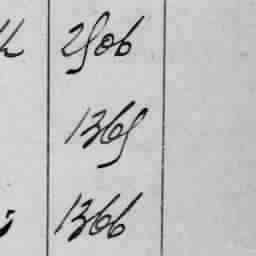 2506
1365
1366